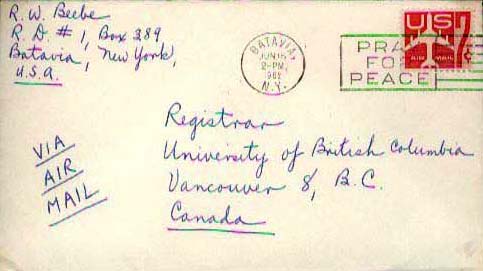 R. W. Beebe
R. D. # 1, Box 289
Batavia, New York,
U.S.A.
BATAVIA,
JUN
2-PM
N.Y.
PRA
FO
PEACE
US
7¢
AIR MAIL
VIA
AIR
MAIL
Registrar
University of British Columbia
Vancouver 8, B.C.
Canada